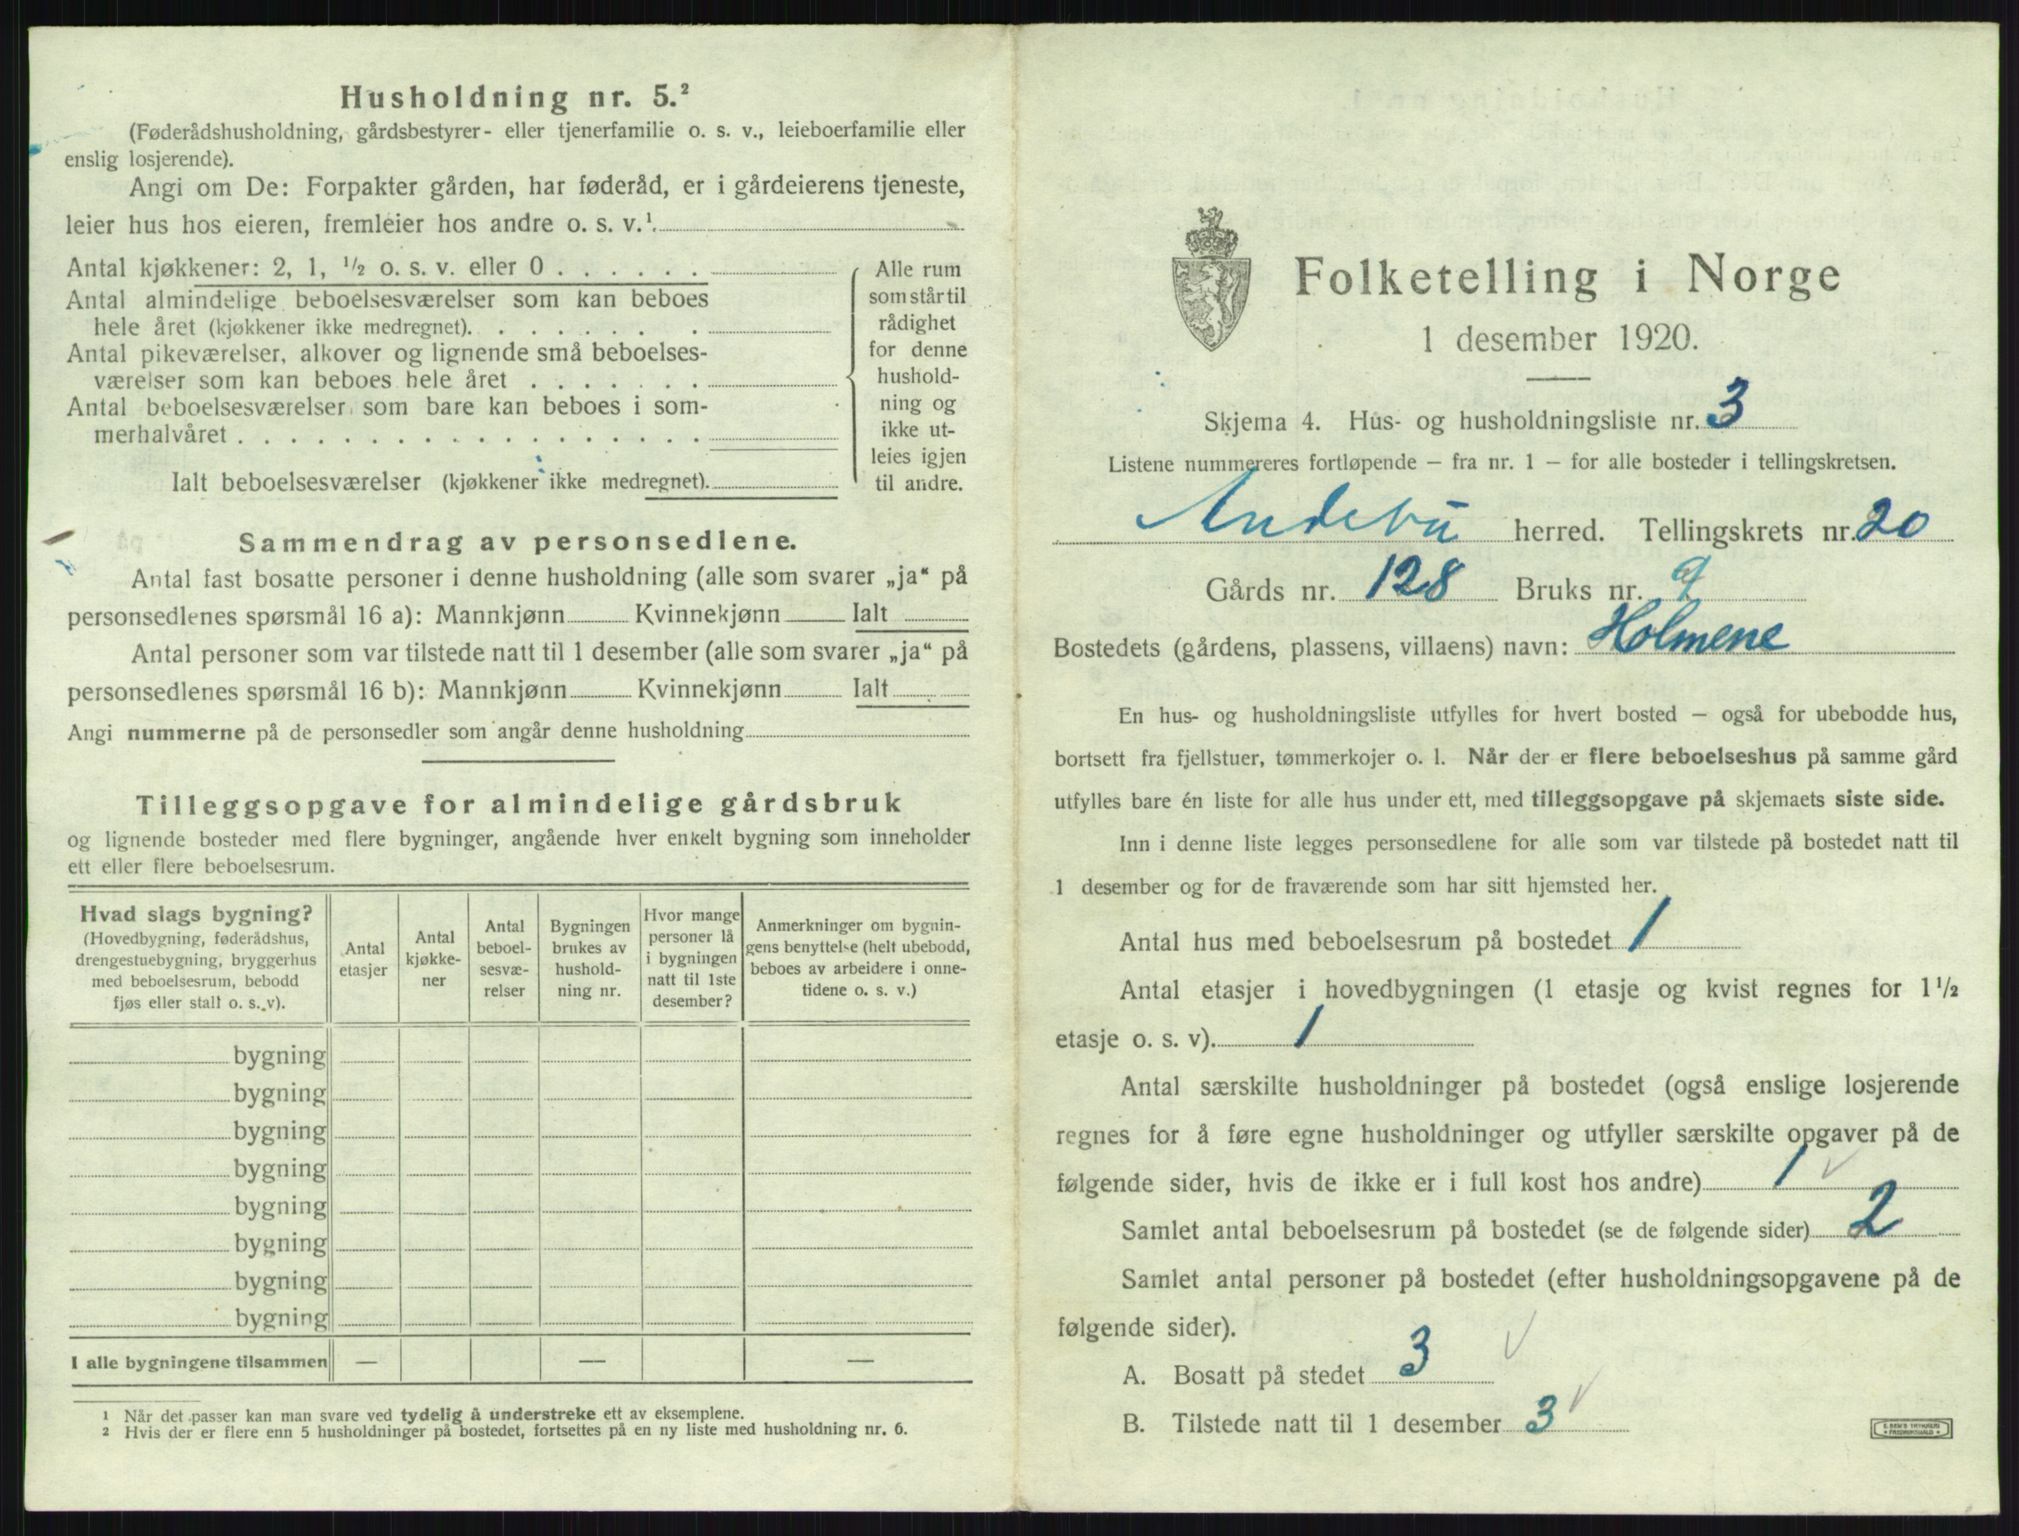 Husholdning nr. 5.²
(Føderådshusholdning, gårdsbestyrer- eller tjenerfamilie o. s. v., leieboerfamilie eller
enslig losjerende).
Angi om De: Forpakter gården, har føderåd, er i gårdeierens tjeneste,
leier hus hos eieren, fremleier hos andre o. s. v.¹
Antal kjøkkener: 2, 1, ½ o. s. v. eller 0 . . . . . .
Antal almindelige beboelsesværelser som kan beboes
hele året (kjøkkener ikke medregnet). . . . . . . .
Antal pikeværelser, alkover og lignende små beboelses-
værelser som kan beboes hele året . . . . . . .
Antal beboelsesværelser som bare kan beboes i som-
merhalvåret . . . . . . . . . . . . . . . . . .
Ialt beboelsesværelser (kjøkkener ikke medregnet).
Alle rum
som står til
rådighet
for denne
hushold-
ning og
ikke ut-
leies igjen
til andre.
Sammendrag av personsedlene.
Antal fast bosatte personer i denne husholdning (alle som svarer „ja“ på
personsedlenes spørsmål 16 a): Mannkjønn Kvinnekjønn Ialt
Antal personer som var tilstede natt til 1 desember (alle som svarer „ja“ på
personsedlenes spørsmål 16 b): Mannkjønn Kvinnekjønn Ialt
Angi nummerne på de personsedler som angår denne husholdning
Tilleggsopgave for almindelige gårdsbruk
og lignende bosteder med flere bygninger, angående hver enkelt bygning som inneholder
ett eller flere beboelsesrum.
Hvad slags bygning?
(Hovedbygning, føderådshus,
drengestuebygning, bryggerhus
med beboelsesrum, bebodd
fjøs eller stall o. s. v).
Antal
etasjer
Antal
kjøkke-
ner
Antal
beboel-
sesvæ-
relser
Bygningen
brukes av
hushold-
ning nr.
Hvor mange
personer lå
i bygningen
natt til 1ste
desember?
Anmerkninger om bygnin-
gens benyttelse (helt ubebodd,
beboes av arbeidere i onne-
tidene o. s. v.)
bygning
bygning
bygning
bygning
bygning
bygning
bygning
bygning
I alle bygningene tilsammen — — —
¹ Når det passer kan man svare ved tydelig å understreke ett av eksemplene.
² Hvis der er flere enn 5 husholdninger på bostedet, fortsettes på en ny liste med husholdning nr. 6.
Folketelling i Norge
1 desember 1920.
Skjema 4. Hus- og husholdningsliste nr. 3
Listene nummereres fortløpende – fra nr. 1 – for alle bosteder i tellingskretsen.
Andebu herred. Tellingskrets nr. 20
Gårds nr. 128 Bruks nr. 9
Bostedets (gårdens, plassens, villaens) navn: Holmene
En hus- og husholdningsliste utfylles for hvert bosted – også for ubebodde hus,
bortsett fra fjellstuer, tømmerkojer o. l. Når der er flere beboelseshus på samme gård
utfylles bare én liste for alle hus under ett, med tilleggsopgave på skjemaets siste side.
Inn i denne liste legges personsedlene for alle som var tilstede på bostedet natt til
1 desember og for de fraværende som har sitt hjemsted her.
Antal hus med beboelsesrum på bostedet 1
Antal etasjer i hovedbygningen (1 etasje og kvist regnes for 1½
etasje o. s. v). 1
Antal særskilte husholdninger på bostedet (også enslige losjerende
regnes for å føre egne husholdninger og utfyller særskilte opgaver på de
følgende sider, hvis de ikke er i full kost hos andre) 1 ✓
Samlet antal beboelsesrum på bostedet (se de følgende sider) 2
Samlet antal personer på bostedet (efter husholdningsopgavene på de
følgende sider).
A. Bosatt på stedet 3 ✓
B. Tilstede natt til 1 desember 3 ✓